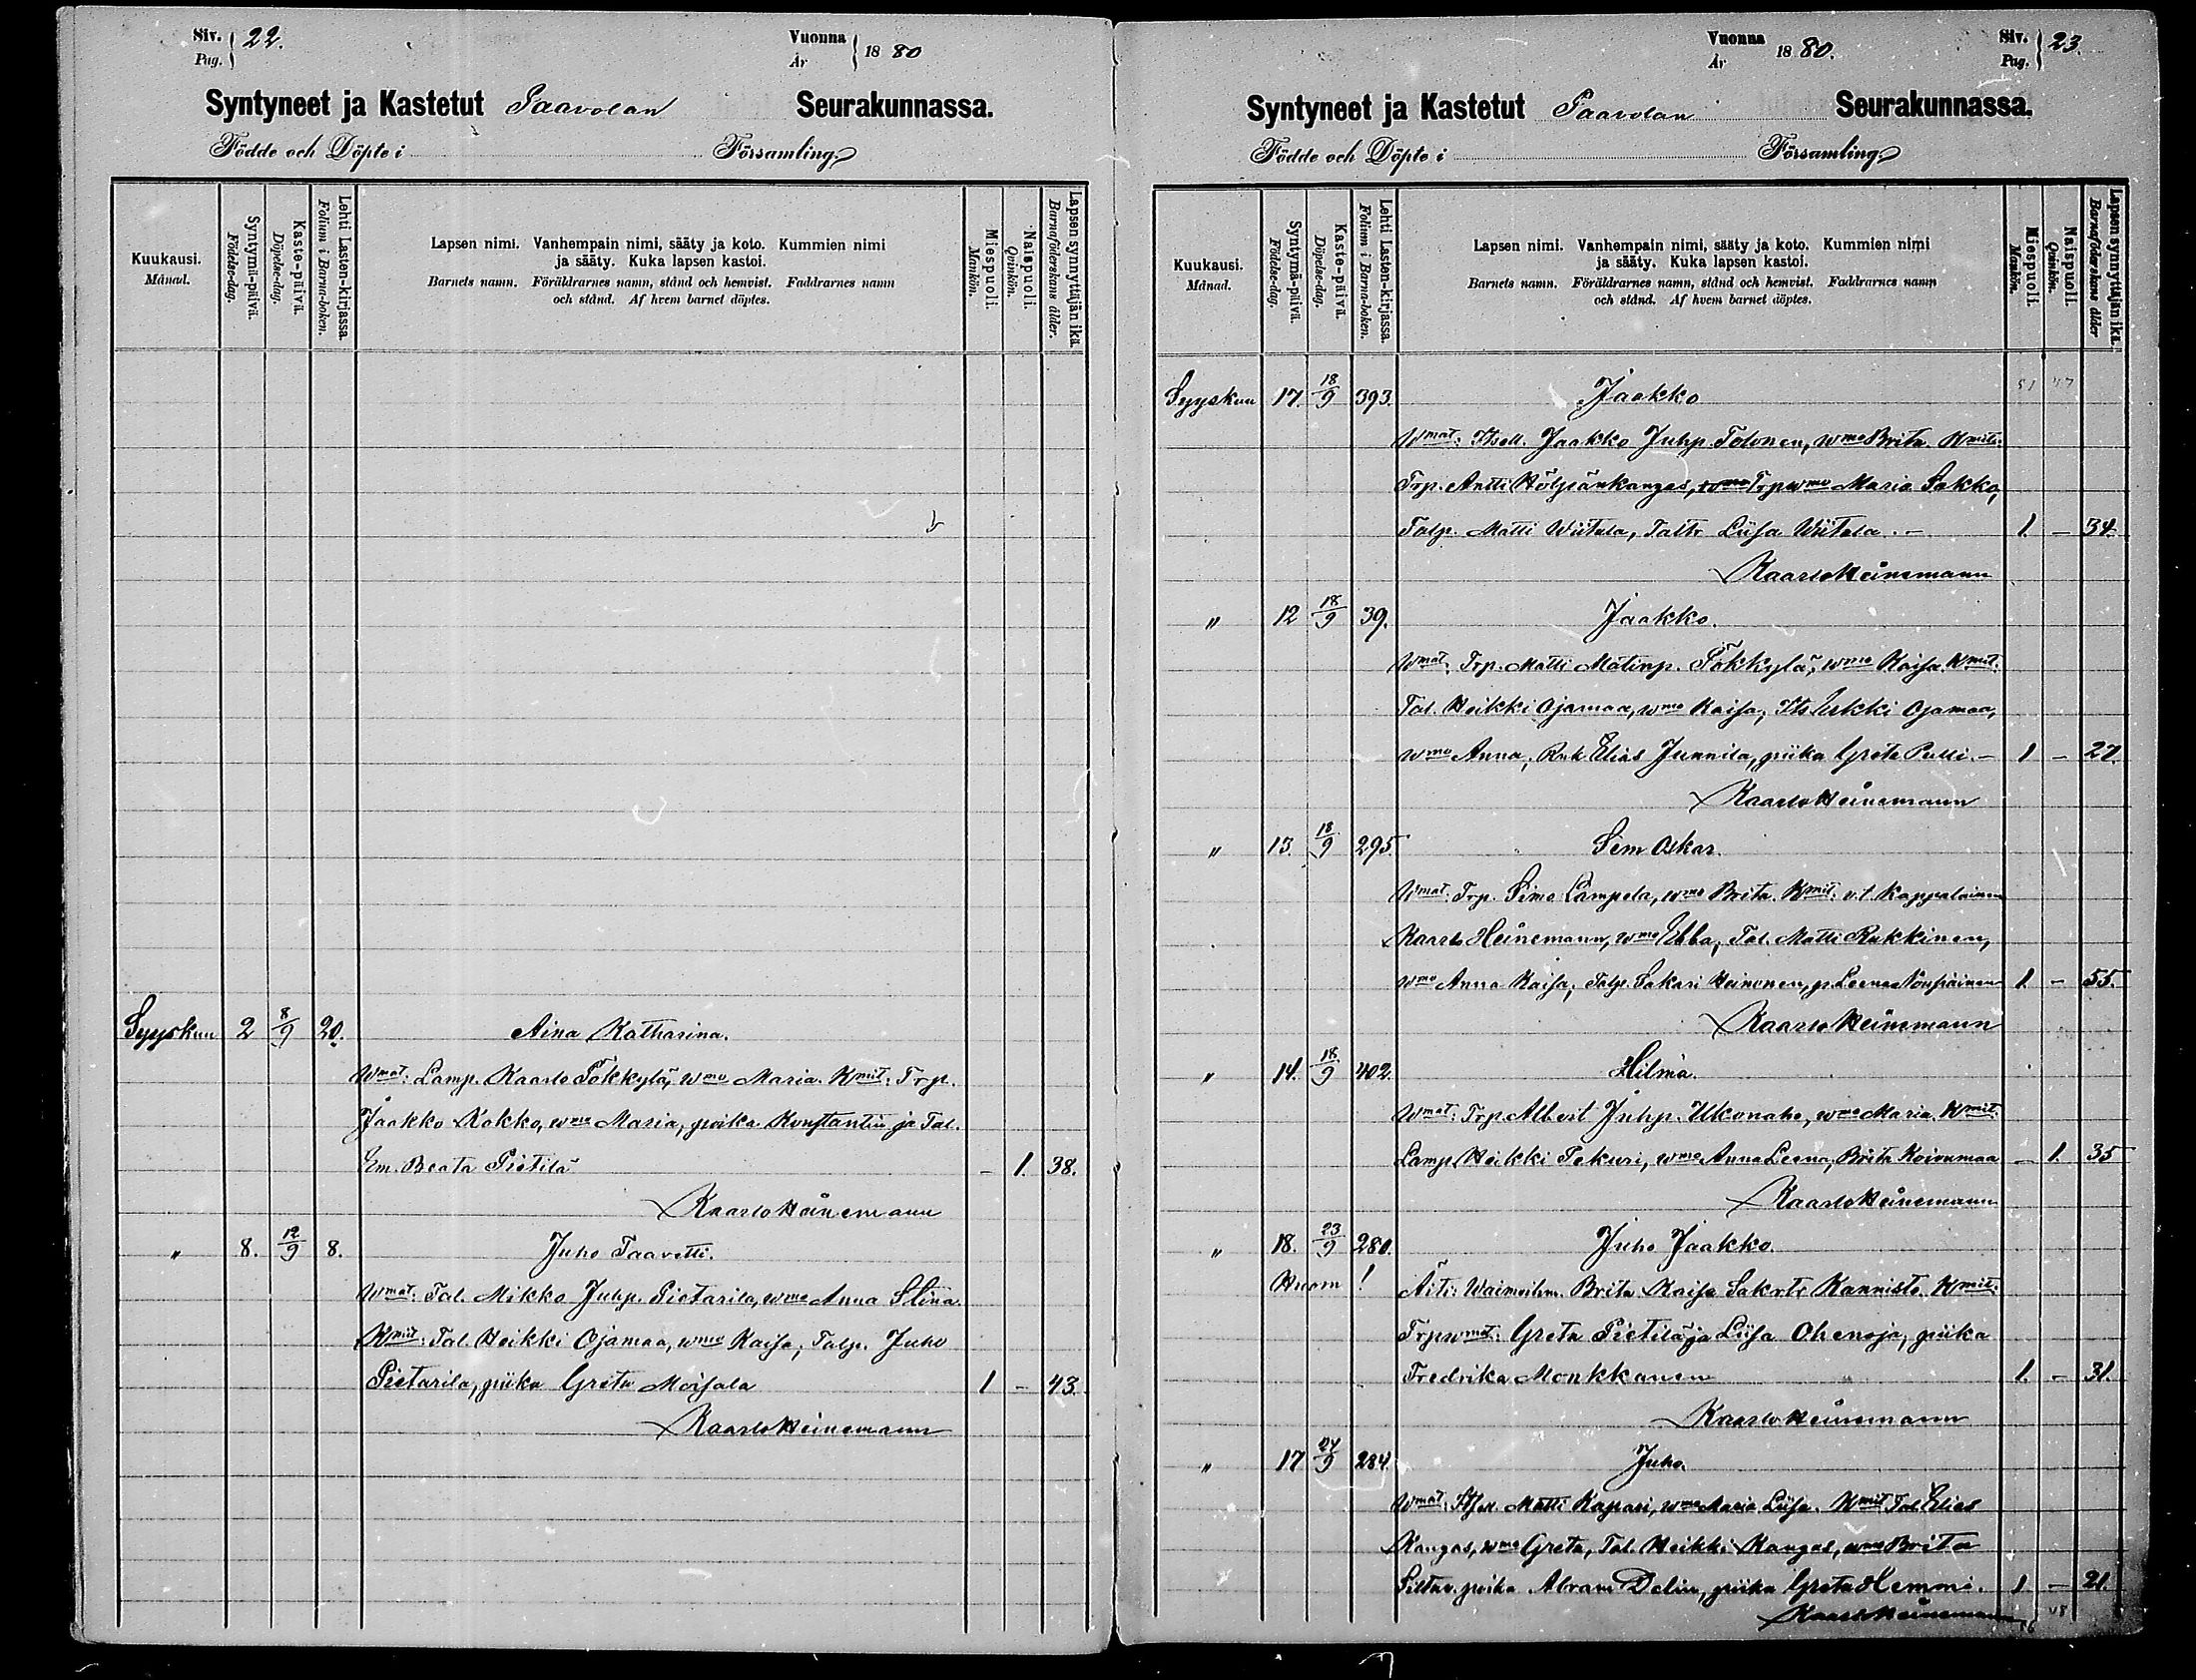 Siv. 22.
Pag.
Vuonna 1880
År
Syntyneet ja Kastetut Paavolan Seurakunnassa.
Födde och Döpte i Församling.
Kuukausi.
Månad.
Syntymä-päivä.
Födelse-dag.
Kaste-päivä.
Döpelse-dag.
Lehti Lasten-kirjassa.
Folium i Barna-boken.
Lapsen nimi. Vanhempain nimi, sääty ja koto. Kummien nimi
ja sääty. Kuka lapsen kastoi.
Barnets namn. Föräldrarnes namn, stånd och hemvist. Faddrarnes namn
och stånd. Af hvem barnet döptes.
Miespuoli.
Mankön.
Naispuoli.
Qvinkön.
Lapsen synnyttäjän ikä.
Barnaföderskans ålder.
Syyskuu 2 8/9 20. Aina Katharina.
Wmat: Lamp. Kaarlo Tökkylä, wmo Maria. Kmit: Trp.
Jaakko Kokko, wmo Maria, poika Konstantin ja Tal.
Em. Beata Pietilä - 1. 38.
Kaarlo Heinemann
" 8. 12/9 8. Juho Taavetti.
Wmat: Tal. Mikko Juhp. Pietarila, wmo Anna Stina.
Kmit: Tal. Heikki Ojamaa, wmo Kaisa, Talp. Juho
Pietarila, piika Greta Moisala 1 - 43.
Kaarlo Heinemann
Vuonna 1880.
År
Siv. 23.
Pag.
Syntyneet ja Kastetut Paavolan Seurakunnassa.
Födde och Döpte i Församling.
Kuukausi.
Månad.
Syntymä-päivä.
Födelse-dag.
Kaste-päivä.
Döpelse-dag.
Lehti Lasten-kirjassa.
Folium i Barna-boken.
Lapsen nimi. Vanhempain nimi, sääty ja koto. Kummien nimi
ja sääty. Kuka lapsen kastoi.
Barnets namn. Föräldrarnes namn, stånd och hemvist. Faddrarnes namn
och stånd. Af hvem barnet döptes.
Miespuoli.
Mankön.
Naispuoli.
Qvinkön.
Lapsen synnyttäjän ikä.
Barnaföderskans ålder
Syyskuu 17. 18/9 393. Jaakko 51 47
Wmat: Itsell. Jaakko Juhp. Tolonen, wmo Brita. Kmit:
Trp. Antti Hölpänkangas, Trpwmo Maria Sakko,
Talp. Matti Wiitala, Taltr Liisa Wiitala. - 1. - 34.
Kaarlo Heinemann
" 12 18/9 39. Jaakko.
Wmat: Trp. Matti Matinp. Tökkylä, wmo Kaisa. Kmit:
Tal. Heikki Ojamaa, wmo Kaisa, Its Erkki Ojamaa,
wmo Anna, Rnk Elias Junnila, piika Greta Pulli. - 1 - 27.
Kaarlo Heinemann
" 13. 18/9 295. Sim Oskar.
Wmat: Trp. Simo Lampela, wmo Brita. Kmit: v.t. Kappalainen
Kaarlo Heinemann, wmo Ebba, Tal. Matti Rukkinen,
wmo Anna Kaisa, Talp. Sakari Heinonen, p. Leena 1. - 55.
Kaarlo Heinemann
" 14. 18/9 402. Hilma.
Wmat: Trp. Albert Juhp. Ukonaho, wmo Maria. Kmit:
Lamp. Heikki Pekuri, wmo Anna Leena, Brita Koivumaa - 1. 35
Kaarlo Heinemann
" 18. 23/9 280. Juho Jaakko.
Huom! Äiti: Waimoihm. Brita Kaisa Sakrtr Kannisto. Kmit:
Trpwmot: Greta Pietilä ja Liisa Ohenoja, piika
Fredrika Monkkanen 1. - 31.
Kaarlo Heinemann
" 17 24/9 284. Juho.
Wmat: Itsell. Matti Kapari, wmo Maria Liisa. Kmit Tal Elias
Kangas, wmo Greta, Tal. Heikki Kangas, wmo Brita
poika Abram Delin, piika Greta Hemmi. 1 - 21.
Kaarlo Heinemann 56 48